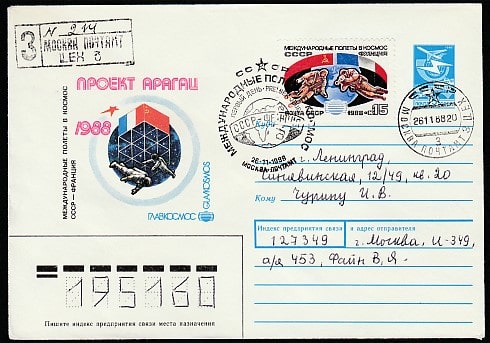 З
№ 214
МОСКВА ПОЧТАМТ
ЦЕХ 8
ПРОЕКТ АРАГАЦ
1988
МЕЖДУНАРОДНЫЕ ПОЛЕТЫ В КОСМОС
СССР – ФРАНЦИЯ
ГЛАВКОСМОС
GLAVCOSMOS
МЕЖДУНАРОДНЫЕ ПОЛЕТЫ В КОСМОС
СССР – ФРАНЦИЯ
ПОЧТА СССР 1988 К 15
МЕЖДУНАРОДНЫЕ ПОЛЕТЫ В КОСМОС
ПЕРВЫЙ ДЕНЬ
СССР-ФРАНЦИЯ
26.11.1988
МОСКВА-ПОЧТАМТ
СССР
26118820
МОСКВА ПОЧТАМТ
г. Ленинград,
Синявинская, 12/49, кв. 20
Кому Чурину И.В.
Индекс предприятия связи и адрес отправителя
127349 г. Москва, И-349,
а/я 453, Файн В,Я.
195160
Пишите индекс предприятия связи места назначения